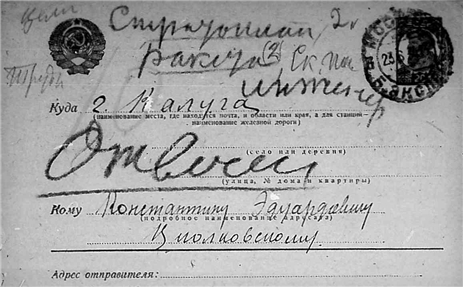 Стратоплан 2л
Ракета (2) Ск. пол
инженер
МОСКВА
ЭКСП
Куда г. Калуга
(наименование места, где находится почта, и области или края, а для станций—
наименование железной дороги)
Отвечен
(село или деревня)
(улица, № дома и квартиры)
Кому Константину Эдуардовичу
(подробное наименование адресата)
Циолковскому
Адрес отправителя: